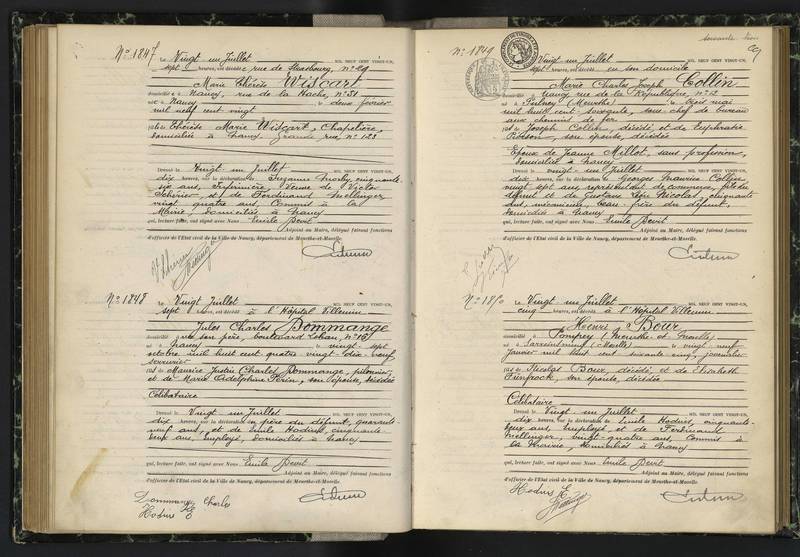 N° 1847
Le Vingt-un Juillet MIL NEUF CENT VINGT-UN,
sept heures, est décédé e rue de Strasbourg, n° 29
Marie Thérèse Wiscart
domicilié e à Nancy, rue de la Hache, n° 31
né e à Nancy le deux février
mil neuf cent vingt
fille de Thérèse Marie Wiscart, Chapelière,
domiciliée à Nancy Grande rue, n° 123
Dressé le Vingt-un Juillet MIL NEUF CENT VINGT-UN,
dix heures, sur la déclaration de Suzanne cinquante-
six ans, Infirmière, Veuve de Victor
Schérier, et de Ferdinand Mellinger
vingt quatre ans Commis à la
Mairie, domiciliés à Nancy
qui, lecture faite, ont signé avec Nous Emile Devit
Adjoint au Maire, délégué faisant fonctions
d'officier de l'Etat civil de la Ville de Nancy, département de Meurthe-et-Moselle.
N° 1848
Le Vingt Juillet MIL NEUF CENT VINGT-UN,
sept heures, est décédé à l'Hôpital Villemin
Jules Charles Dommange
domicilié avec son père, boulevard Lobau, n° 16
né à Nancy le vingt-sept
octobre mil huit cent quatre vingt-dix-neuf
serrurier
fils de Maurice Justin Charles Dommange, pilonnier,
et de Marie Adelphine Perin, son épouse, décédée
Célibataire
Dressé le Vingt-un Juillet MIL NEUF CENT VINGT-UN,
dix heures, sur la déclaration du père du défunt, quarante-
neuf ans, et de Emile Hodius, cinquante-
deux ans, Employé, domiciliés à Nancy
qui, lecture faite, ont signé avec Nous Emile Devit
Adjoint au Maire, délégué faisant fonctions
d'officier de l'Etat civil de la Ville de Nancy, département de Meurthe-et-Moselle.
Dommange Charles
Hodius E
N° 1849
Le Vingt-un Juillet MIL NEUF CENT VINGT-UN,
sept heures, est décédé en son domicile
Marie Charles Joseph Collin
domicilié à Nancy rue de la République, n° 12
né à Pulney (Meurthe) le trois mai
mil huit cent soixante, sous-chef de bureau
aux chemins de fer
fils de Joseph Collin, décédé et de Euphrasie
son épouse, décédée
Epoux de Jeanne Millot, sans profession,
domiciliée à Nancy
Dressé le vingt-un Juillet MIL NEUF CENT VINGT-UN,
dix heures, sur la déclaration de Georges Maurice Collin
vingt sept ans, représentant de commerce, fils du
défunt et de Gustave Nicolas, cinquante
ans, mécanicien, beau-frère du défunt,
domiciliés à Nancy
qui, lecture faite, ont signé avec Nous Emile Devit
Adjoint au Maire, délégué faisant fonctions
d'officier de l'Etat civil de la Ville de Nancy, département de Meurthe-et-Moselle.
N° 1850
Le Vingt-un Juillet MIL NEUF CENT VINGT-UN,
cinq heures, est décédé à l'Hôpital Villemin
Henri Bour
domicilié à Pompey (Meurthe et Moselle)
né à Sarreinsming (Moselle) le vingt-neuf
Janvier mil huit cent soixante cinq, journalier
fils de Nicolas Bour, décédé et de Elisabeth
Fünfrock, son épouse, décédée
Célibataire
Dressé le Vingt-un Juillet MIL NEUF CENT VINGT-UN,
dix heures, sur la déclaration de Emile Hodius, cinquante-
deux ans, Employé, et de Ferdinand
Mellinger, vingt-quatre ans, Commis à
la Mairie, domiciliés à Nancy
qui, lecture faite, ont signé avec Nous Emile Devit
Adjoint au Maire, délégué faisant fonctions
d'officier de l'Etat civil de la Ville de Nancy, département de Meurthe-et-Moselle.
Hodius E